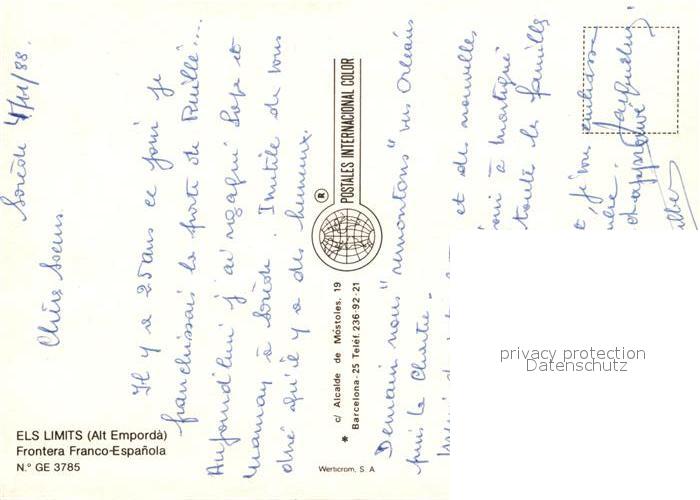 Sorède 4/11/88.
Chère Soeur
Il y a 25 ans ce jour je
franchissais la porte de Ruillé....
Aujourd'hui j'ai regagné Papa et
Maman à Sorède. Inutile de vous
dire qu'il y a des heureux.
Demain nous "remontons" vers Orléans
puis la Chartre -
et des nouvelles
à Martigné
toute la famille
je vous embrasse
Jacqueline
ELS LIMITS (Alt Empordà)
Frontera Franco-Española
N.° GE 3785
POSTALES INTERNACIONAL COLOR
®
* c/ Alcalde de Móstoles, 19
Barcelona-25 Teléf. 236-92-21
Werticrom, S. A.
privacy protection
Datenschutz